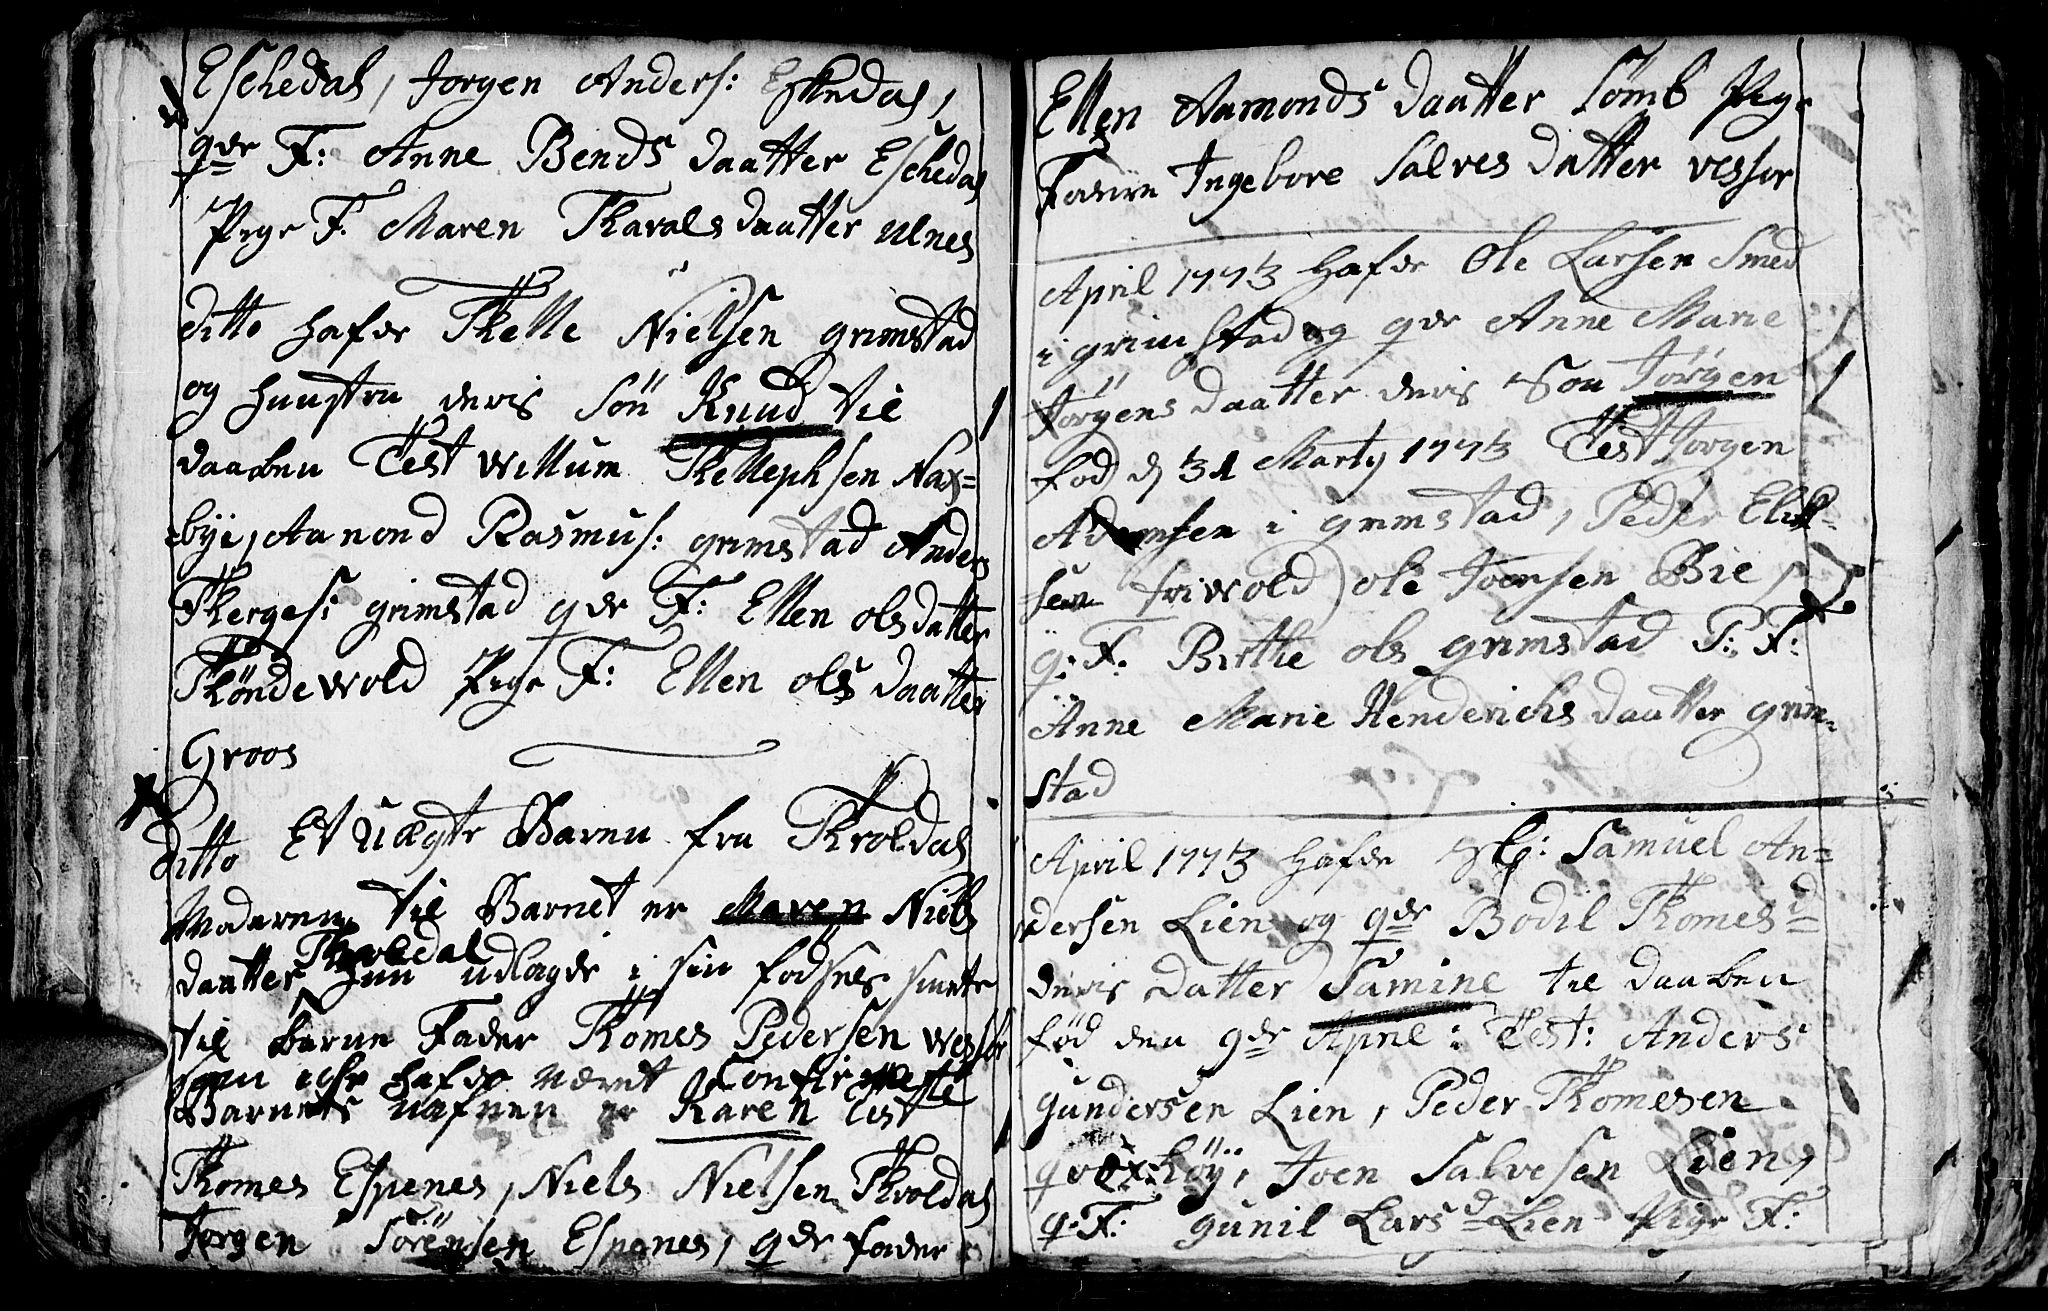 Eschedal, Jorgen Anders: Eskedal,
qde F: Anne Bends daatter Eschedal
Pige F. Maren Tharalsdaatter Ulnes
ditto hafde Thelle Nielsen grimstad
og hunstru deris sön Knud til
daaben Test Willum Thellephsen Nax=
bye, Aanond Rasmus: grimstad Anders
Therges: grimstad qde F: Ellen olsdatter
Thöndewold Pige F: Ellen olsdaatter
Groos
ditto Et Uægte Barn fra Throldal
Moderen til Barnet er Maren Niels
daatter Throldal hun udlagde i sin fodsels smerte
til barne Fader Thomes Pedersen Wessör
som icke hafde været Confirmerte
Barnets nafnen er Karen Test
Thomes Espenes, Niels Nielsen Throldal
Jorgen Sörensen Espenes, qde fader
Ellen Aamonds daatter Sömb Pige
Fadern Ingebore Salves datter vessør
April 1773 hafde Ole Larsen Smed
i grimstad og qde Anne Marie
Jörgens daatter deris Son Jörgen
fod d 31 Marty 1773 Test Jorgen
Adamsen i grimstad, Peder Elick=
sen friwold, ole Joensen Bie,
q. F. Birthe ols grimstad P: F:
Anne Marie Henderichs daatter grim=
stad
April 1773 hafde Skp: Samuel An=
dersen Lien og qde Bodil Thomesd
deris datter Samine til daaben
föd den 9de Aprie: Test: Anders
gundersen Lien, Peder Thomesen
qvoxhöÿ, Joen Salvesen Lien,
q. F: gunil Larsd Lien Pige F: